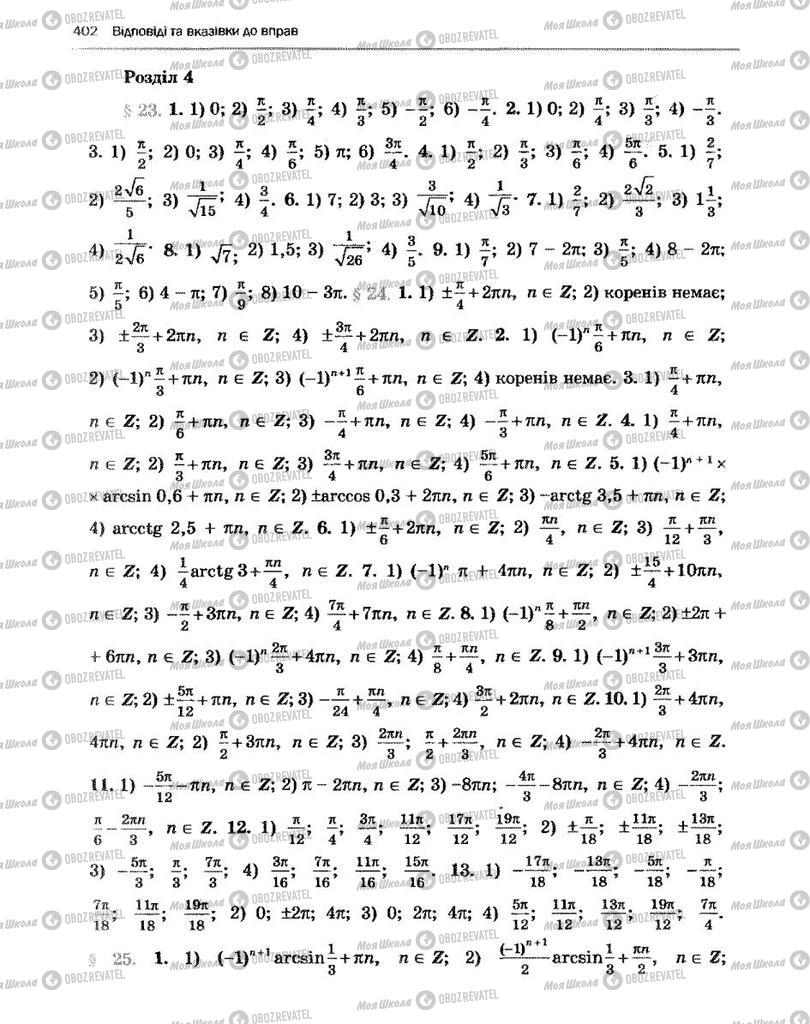 402 Відповіді та вказівки до вправ
Розділ 4
§ 23. 1. 1) 0; 2) π/2; 3) π/4; 4) π/3; 5) −π/2; 6) −π/4. 2. 1) 0; 2) π/4; 3) π/3; 4) −π/3.
3. 1) π/2; 2) 0; 3) π/4; 4) π/6; 5) π; 6) 3π/4. 4. 1) π/2; 2) π/3; 3) π/6; 4) 5π/6. 5. 1) 2/7;
2) 2√6/5; 3) 1/√15; 4) 3/4. 6. 1) 7; 2) 3; 3) 3/√10; 4) 1/√3. 7. 1) 2/7; 2) 2√2/3; 3) 1 1/3;
4) 1/2√6. 8. 1) √7; 2) 1,5; 3) 1/√26; 4) 3/5. 9. 1) π/7; 2) 7 − 2π; 3) π/5; 4) 8 − 2π;
5) π/5; 6) 4 − π; 7) π/9; 8) 10 − 3π. § 24. 1. 1) ±π/4 + 2πn, n ∈ Z; 2) коренів немає;
3) ±2π/3 + 2πn, n ∈ Z; 4) ±3π/4 + 2πn, n ∈ Z. 2. 1) (−1)ⁿ π/6 + πn, n ∈ Z;
2) (−1)ⁿ π/3 + πn, n ∈ Z; 3) (−1)ⁿ⁺¹ π/6 + πn, n ∈ Z; 4) коренів немає. 3. 1) π/4 + πn,
n ∈ Z; 2) π/6 + πn, n ∈ Z; 3) −π/4 + πn, n ∈ Z; 4) −π/3 + πn, n ∈ Z. 4. 1) π/4 + πn,
n ∈ Z; 2) π/3 + πn, n ∈ Z; 3) 3π/4 + πn, n ∈ Z; 4) 5π/6 + πn, n ∈ Z. 5. 1) (−1)ⁿ⁺¹ ×
× arcsin 0,6 + πn, n ∈ Z; 2) ±arccos 0,3 + 2πn, n ∈ Z; 3) −arctg 3,5 + πn, n ∈ Z;
4) arcctg 2,5 + πn, n ∈ Z. 6. 1) ±π/6 + 2πn, n ∈ Z; 2) πn/4, n ∈ Z; 3) π/12 + πn/3,
n ∈ Z; 4) 1/4 arctg 3 + πn/4, n ∈ Z. 7. 1) (−1)ⁿ π + 4πn, n ∈ Z; 2) ±15/4 + 10πn,
n ∈ Z; 3) −π/2 + 3πn, n ∈ Z; 4) 7π/4 + 7πn, n ∈ Z. 8. 1) (−1)ⁿ π/8 + πn/2, n ∈ Z; 2) ±2π +
+ 6πn, n ∈ Z; 3) (−1)ⁿ 2π/3 + 4πn, n ∈ Z; 4) π/8 + πn/4, n ∈ Z. 9. 1) (−1)ⁿ⁺¹ 3π/4 + 3πn,
n ∈ Z; 2) ±5π/12 + πn, n ∈ Z; 3) −π/24 + πn/4, n ∈ Z; 4) 3π/2 + 2πn, n ∈ Z. 10. 1) 2π/3 + 4πn,
4πn, n ∈ Z; 2) π/2 + 3πn, n ∈ Z; 3) 2πn/3; π/2 + 2πn/3, n ∈ Z; 4) −2π/3 + 4πn, n ∈ Z.
11. 1) −5π/12 − πn, n ∈ Z; 2) π − 2πn, n ∈ Z; 3) −8πn; −4π/3 − 8πn, n ∈ Z; 4) −2πn/3;
π/6 − 2πn/3, n ∈ Z. 12. 1) π/12; π/4; 3π/4; 11π/12; 17π/12; 19π/12; 2) ±π/18; ±11π/18; ±13π/18;
3) −5π/3; π/3; 7π/3; 4) 3π/16; 7π/16; 11π/16; 15π/16. 13. 1) −17π/18; −13π/18; −5π/18; −π/18;
7π/18; 11π/18; 19π/18; 2) 0; ±2π; 4π; 3) 0; 2π; 4π; 4) 5π/12; 11π/12; 13π/12; 19π/12; 7π/4.
§ 25. 1. 1) (−1)ⁿ⁺¹ arcsin 1/3 + πn, n ∈ Z; 2) (−1)ⁿ⁺¹/2 arcsin 1/3 + πn/2, n ∈ Z;